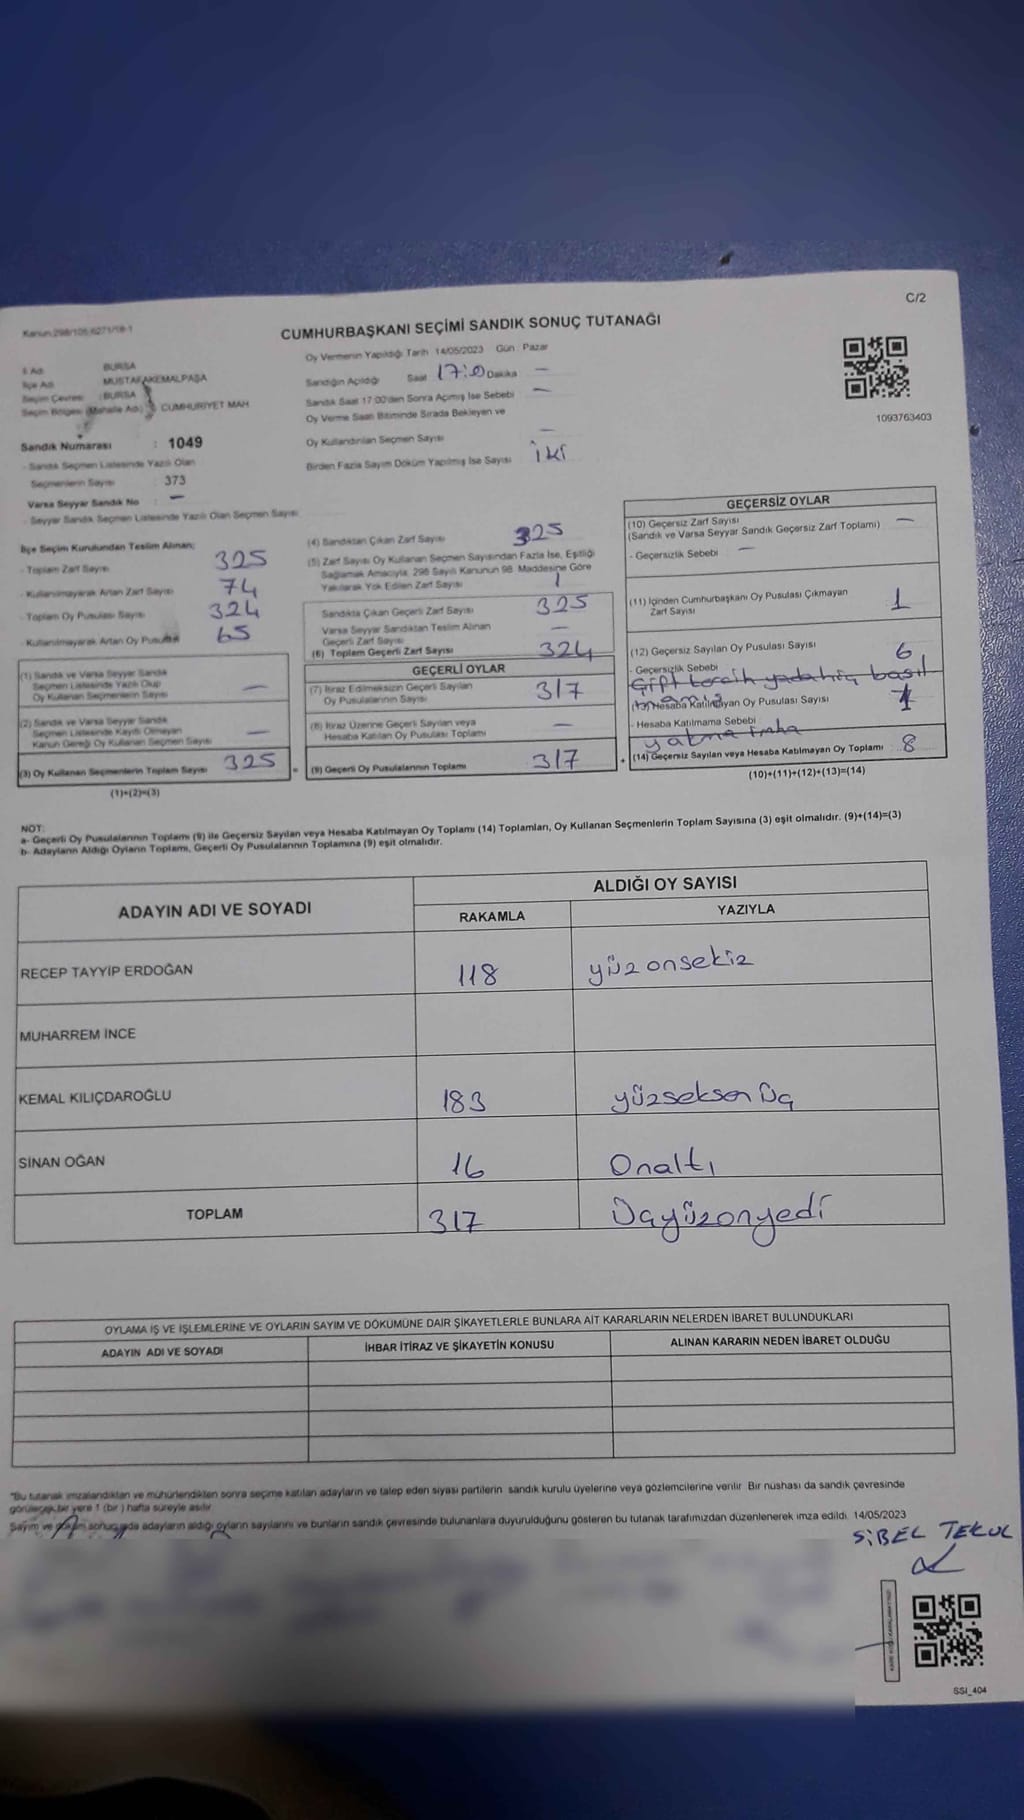 C/2
Kanun:298/105 6271/18-1
CUMHURBAŞKANI SEÇİMİ SANDIK SONUÇ TUTANAĞI
İl Adı : BURSA
İlçe Adı : MUSTAFAKEMALPAŞA
Seçim Çevresi : BURSA
Seçim Bölgesi (Mahalle Adı) : CUMHURİYET MAH
Sandık Numarası : 1049
- Sandık Seçmen Listesinde Yazılı Olan
Seçmenlerin Sayısı : 373
Varsa Seyyar Sandık No : —
- Seyyar Sandık Seçmen Listesinde Yazılı Olan Seçmen Sayısı
Oy Vermenin Yapıldığı Tarih 14/05/2023 Gün : Pazar
Sandığın Açıldığı Saat 17:0 Dakika —
Sandık Saat 17:00'den Sonra Açılmış İse Sebebi —
Oy Verme Saati Bitiminde Sırada Bekleyen ve
Oy Kullandırılan Seçmen Sayısı —
Birden Fazla Sayım Döküm Yapılmış İse Sayısı iki
1093763403
İlçe Seçim Kurulundan Teslim Alınan;
- Toplam Zarf Sayısı 325
- Kullanılmayarak Artan Zarf Sayısı 74
- Toplam Oy Pusulası Sayısı 324
- Kullanılmayarak Artan Oy Pusulası 65
(1) Sandık ve Varsa Seyyar Sandık
Seçmen Listesinde Yazılı Olup
Oy Kullanan Seçmenlerin Sayısı —
(2) Sandık ve Varsa Seyyar Sandık
Seçmen Listesinde Kayıtlı Olmayan
Kanun Gereği Oy Kullanan Seçmen Sayısı —
(3) Oy Kullanan Seçmenlerin Toplam Sayısı 325
(1)+(2)=(3)
(4) Sandıktan Çıkan Zarf Sayısı 325
(5) Zarf Sayısı Oy Kullanan Seçmen Sayısından Fazla İse, Eşitliği
Sağlamak Amacıyla, 298 Sayılı Kanunun 98. Maddesine Göre
Yakılarak Yok Edilen Zarf Sayısı 1
Sandıkta Çıkan Geçerli Zarf Sayısı 325
Varsa Seyyar Sandıktan Teslim Alınan
Geçerli Zarf Sayısı —
(6) Toplam Geçerli Zarf Sayısı 324
GEÇERLİ OYLAR
(7) İtiraz Edilmeksizin Geçerli Sayılan
Oy Pusulasının Sayısı 317
(8) İtiraz Üzerine Geçerli Sayılan veya
Hesaba Katılan Oy Pusulası Toplamı —
(9) Geçerli Oy Pusulalarının Toplamı 317
GEÇERSİZ OYLAR
(10) Geçersiz Zarf Sayısı
(Sandık ve Varsa Seyyar Sandık Geçersiz Zarf Toplamı) —
- Geçersizlik Sebebi —
(11) İçinden Cumhurbaşkanı Oy Pusulası Çıkmayan
Zarf Sayısı 1
(12) Geçersiz Sayılan Oy Pusulası Sayısı 6
- Geçersizlik Sebebi
Çift tercih yadahiç basıl
(13) Hesaba Katılmayan Oy Pusulası Sayısı 1
- Hesaba Katılmama Sebebi
yakma imha
(14) Geçersiz Sayılan veya Hesaba Katılmayan Oy Toplamı 8
(10)+(11)+(12)+(13)=(14)
NOT:
a- Geçerli Oy Pusulalarının Toplamı (9) ile Geçersiz Sayılan veya Hesaba Katılmayan Oy Toplamı (14) Toplamları, Oy Kullanan Seçmenlerin Toplam Sayısına (3) eşit olmalıdır. (9)+(14)=(3)
b- Adayların Aldığı Oyların Toplamı, Geçerli Oy Pusulalarının Toplamına (9) eşit olmalıdır.
ADAYIN ADI VE SOYADI ALDIĞI OY SAYISI
RAKAMLA YAZIYLA
RECEP TAYYİP ERDOĞAN 118 yüzonsekiz
MUHARREM İNCE
KEMAL KILIÇDAROĞLU 183 yüzseksen üç
SİNAN OĞAN 16 Onaltı
TOPLAM 317 Üçyüzonyedi
OYLAMA İŞ VE İŞLEMLERİNE VE OYLARIN SAYIM VE DÖKÜMÜNE DAİR ŞİKAYETLERLE BUNLARA AİT KARARLARIN NELERDEN İBARET BULUNDUKLARI
ADAYIN ADI VE SOYADI İHBAR İTİRAZ VE ŞİKAYETİN KONUSU ALINAN KARARIN NEDEN İBARET OLDUĞU
"Bu tutanak imzalandıktan ve mühürlendikten sonra seçime katılan adayların ve talep eden siyasi partilerin sandık kurulu üyelerine veya gözlemcilerine verilir. Bir nüshası da sandık çevresinde
görülecek bir yere 1 (bir ) hafta süreyle asılır.
Sayım ve döküm sonucunda adayların aldığı oyların sayılarını ve bunların sandık çevresinde bulunanlara duyurulduğunu gösteren bu tutanak tarafımızdan düzenlenerek imza edildi. 14/05/2023
SİBEL TEKUL
SSI_404